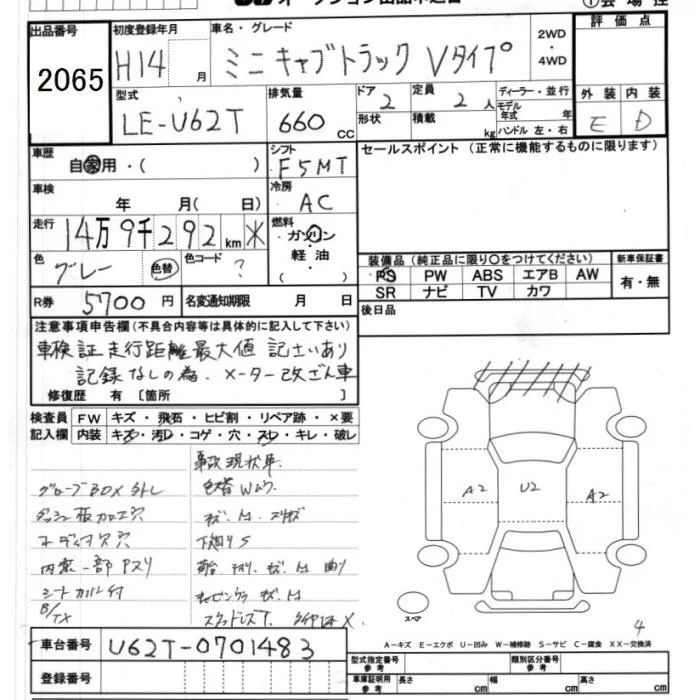 出品番号
2065
初度登録年月
H14 月
車名・グレード
ミニキャブトラック Vタイプ
2WD
・
4WD
評価点
型式
LE-U62T
排気量
660 cc
ドア
2
定員
2 人
形状
積載 kg
ディーラー・並行
モデル年式 年
ハンドル 左・右
外装 内装
E D
車歴
自家用・( )
シフト
F5MT
セールスポイント(正常に機能するものに限ります)
車検
年 月( 日)
冷房
AC
走行
14万9千292km
燃料
ガソリン
軽油
( )
色
グレー
色替
色コード
?
装備品(純正品に限り○をつけてください)
PS PW ABS エアB AW
SR ナビ TV カワ
新車保証書
有・無
R券
5700 円
名変通知期限 月 日
後日品
注意事項申告欄(不具合内容等は具体的に記入して下さい)
車検証走行距離最大値 記さいあり
記録なしの為、メーター改ざん車
修復歴 有〔箇所 〕
検査員 FW キズ・飛石・ヒビ割・リペア跡・×要
記入欄 内装 キズ・汚レ・コゲ・穴・スレ・キレ・破レ
事故現状車
グローブBOX外レ
色替Wムラ
ダッシュ板加工穴
オーディオ穴
下廻りS
内装一部Pヌリ
シートカバー付
A2 U2 A2
スペア
4
車台番号
U62T-0701483
登録番号
A-キズ E-エクボ U-凹み W-補修跡 S-サビ C-腐食 XX-交換済
型式指定番号
参考
類別区分番号
参考
車庫証明用
参考
長さ cm
幅 cm
高さ cm